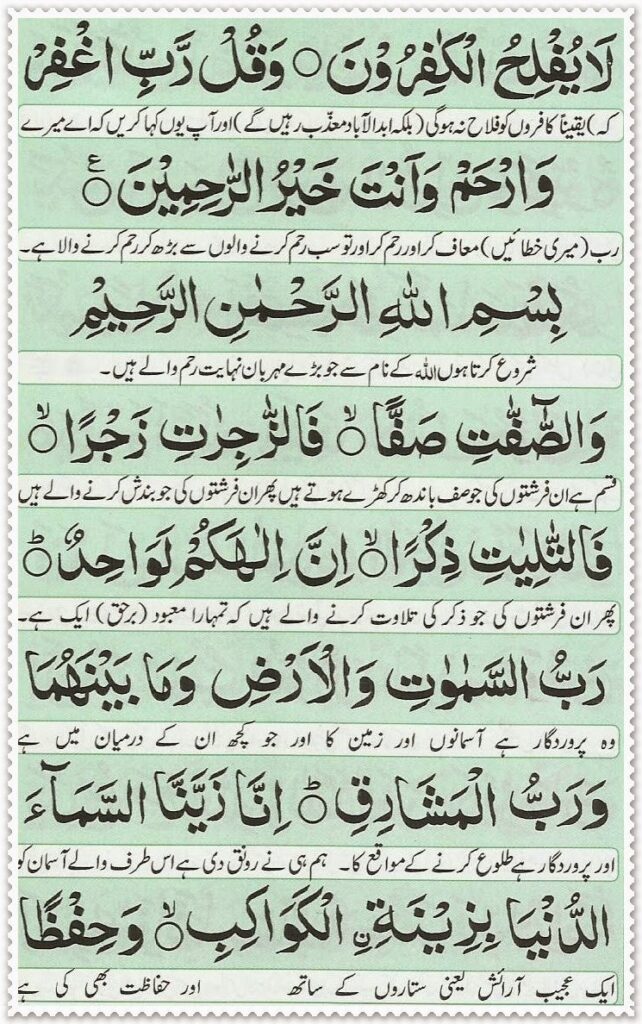 لَا يُفْلِحُ الْكٰفِرُوْنَ ۝ وَقُلْ رَّبِّ اغْفِرْ
کہ) یقیناً کافروں کو فلاح نہ ہوگی (بلکہ ابدالآباد معذّب رہیں گے) اور آپ یوں کہا کریں کہ اے میرے
وَارْحَمْ وَاَنْتَ خَيْرُ الرّٰحِمِيْنَ ۝ ع
رب (میری خطائیں) معاف کر اور رحم کر اور تو سب رحم کرنے والوں سے بڑھ کر رحم کرنے والا ہے۔
بِسْمِ اللهِ الرَّحْمٰنِ الرَّحِيْمِ
شروع کرتا ہوں اللہ کے نام سے جو بڑے مہربان نہایت رحم والے ہیں۔
وَالصّٰٓفّٰتِ صَفًّا ۝ۙ فَالزّٰجِرٰتِ زَجْرًا ۝ۙ
قسم ہے ان فرشتوں کی جو صف باندھ کر کھڑے ہوتے ہیں پھر ان فرشتوں کی جو بندش کرنے والے ہیں
فَالتّٰلِيٰتِ ذِكْرًا ۝ۙ اِنَّ اِلٰهَكُمْ لَوَاحِدٌ ۝ؕ
پھر ان فرشتوں کی جو ذکر کی تلاوت کرنے والے ہیں کہ تمہارا معبود (برحق) ایک ہے۔
رَبُّ السَّمٰوٰتِ وَالْاَرْضِ وَمَا بَيْنَهُمَا
وہ پروردگار ہے آسمانوں اور زمین کا اور جو کچھ ان کے درمیان میں ہے
وَرَبُّ الْمَشَارِقِ ۝ؕ اِنَّا زَيَّنَّا السَّمَآءَ
اور پروردگار ہے طلوع کرنے کے مواقع کا۔ ہم ہی نے رونق دی ہے اس طرف والے آسمان کو
الدُّنْيَا بِزِيْنَةِ ن الْكَوَاكِبِ ۝ۙ وَحِفْظًا
ایک عجیب آرائش یعنی ستاروں کے ساتھ اور حفاظت بھی کی ہے